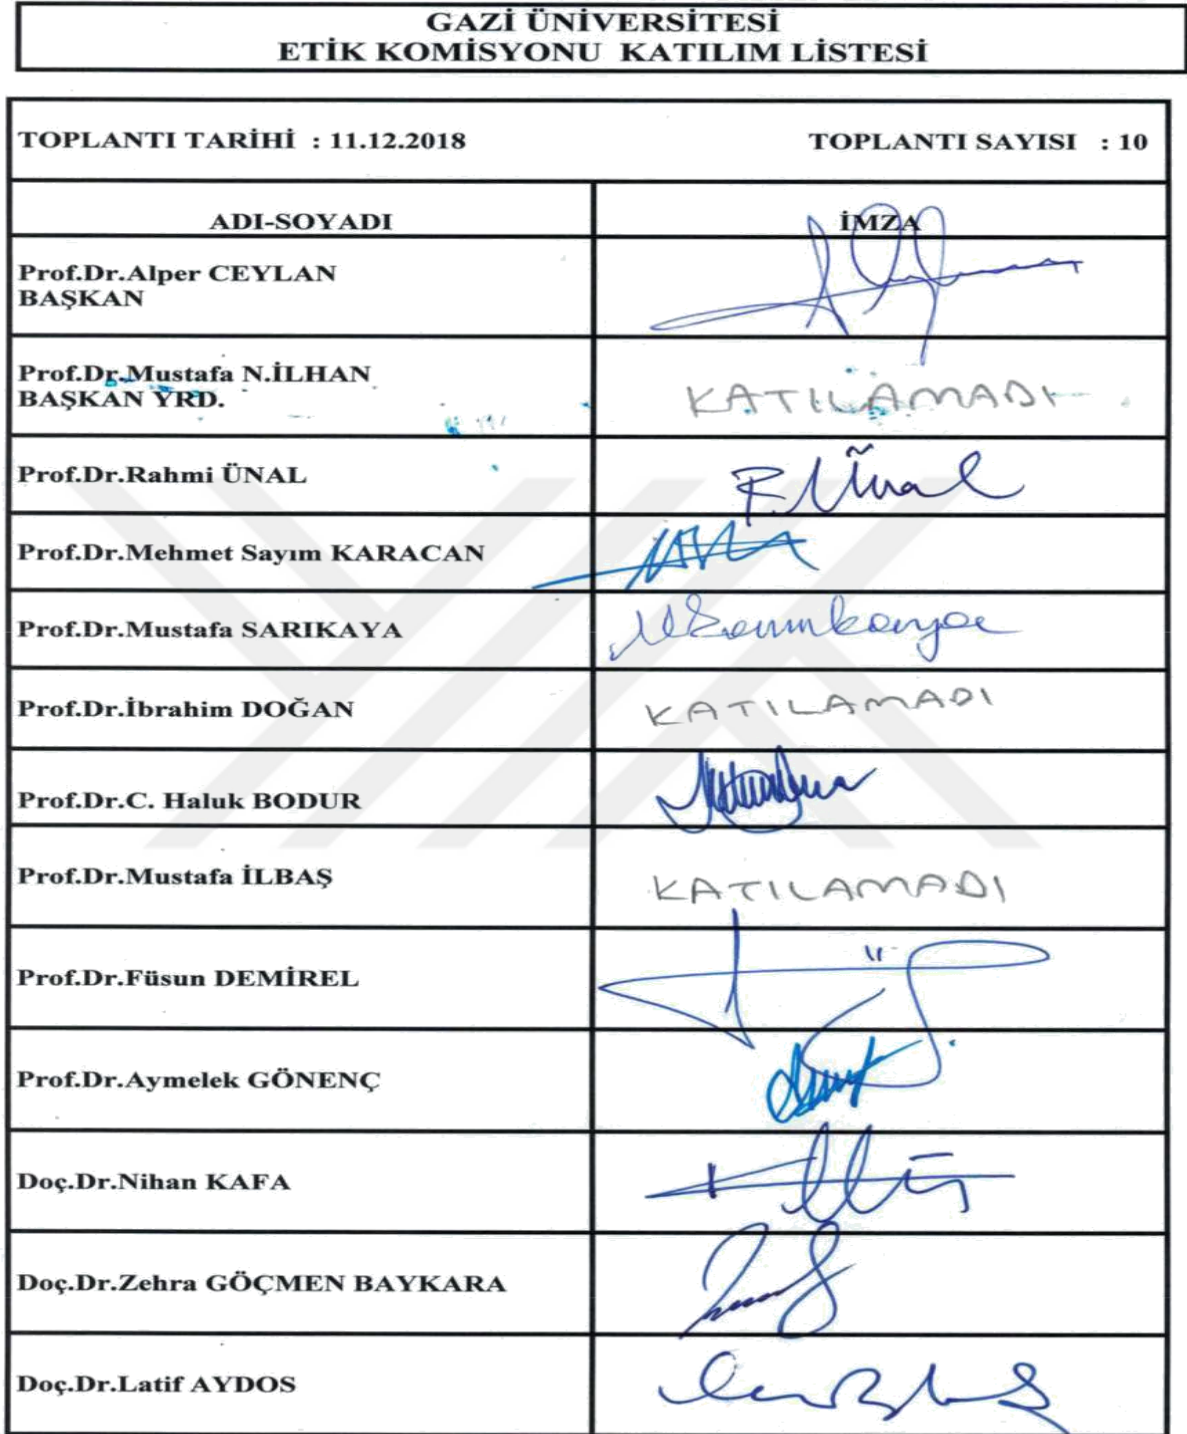 GAZİ ÜNİVERSİTESİ
ETİK KOMİSYONU KATILIM LİSTESİ
TOPLANTI TARİHİ : 11.12.2018 TOPLANTI SAYISI : 10
ADI-SOYADI İMZA
Prof.Dr.Alper CEYLAN
BAŞKAN
Prof.Dr.Mustafa N.İLHAN
BAŞKAN YRD.
KATILAMADI
Prof.Dr.Rahmi ÜNAL
R.Ünal
Prof.Dr.Mehmet Sayım KARACAN
Prof.Dr.Mustafa SARIKAYA
MSarıkaya
Prof.Dr.İbrahim DOĞAN
KATILAMADI
Prof.Dr.C. Haluk BODUR
Prof.Dr.Mustafa İLBAŞ
KATILAMADI
Prof.Dr.Füsun DEMİREL
Prof.Dr.Aymelek GÖNENÇ
Doç.Dr.Nihan KAFA
Doç.Dr.Zehra GÖÇMEN BAYKARA
Doç.Dr.Latif AYDOS